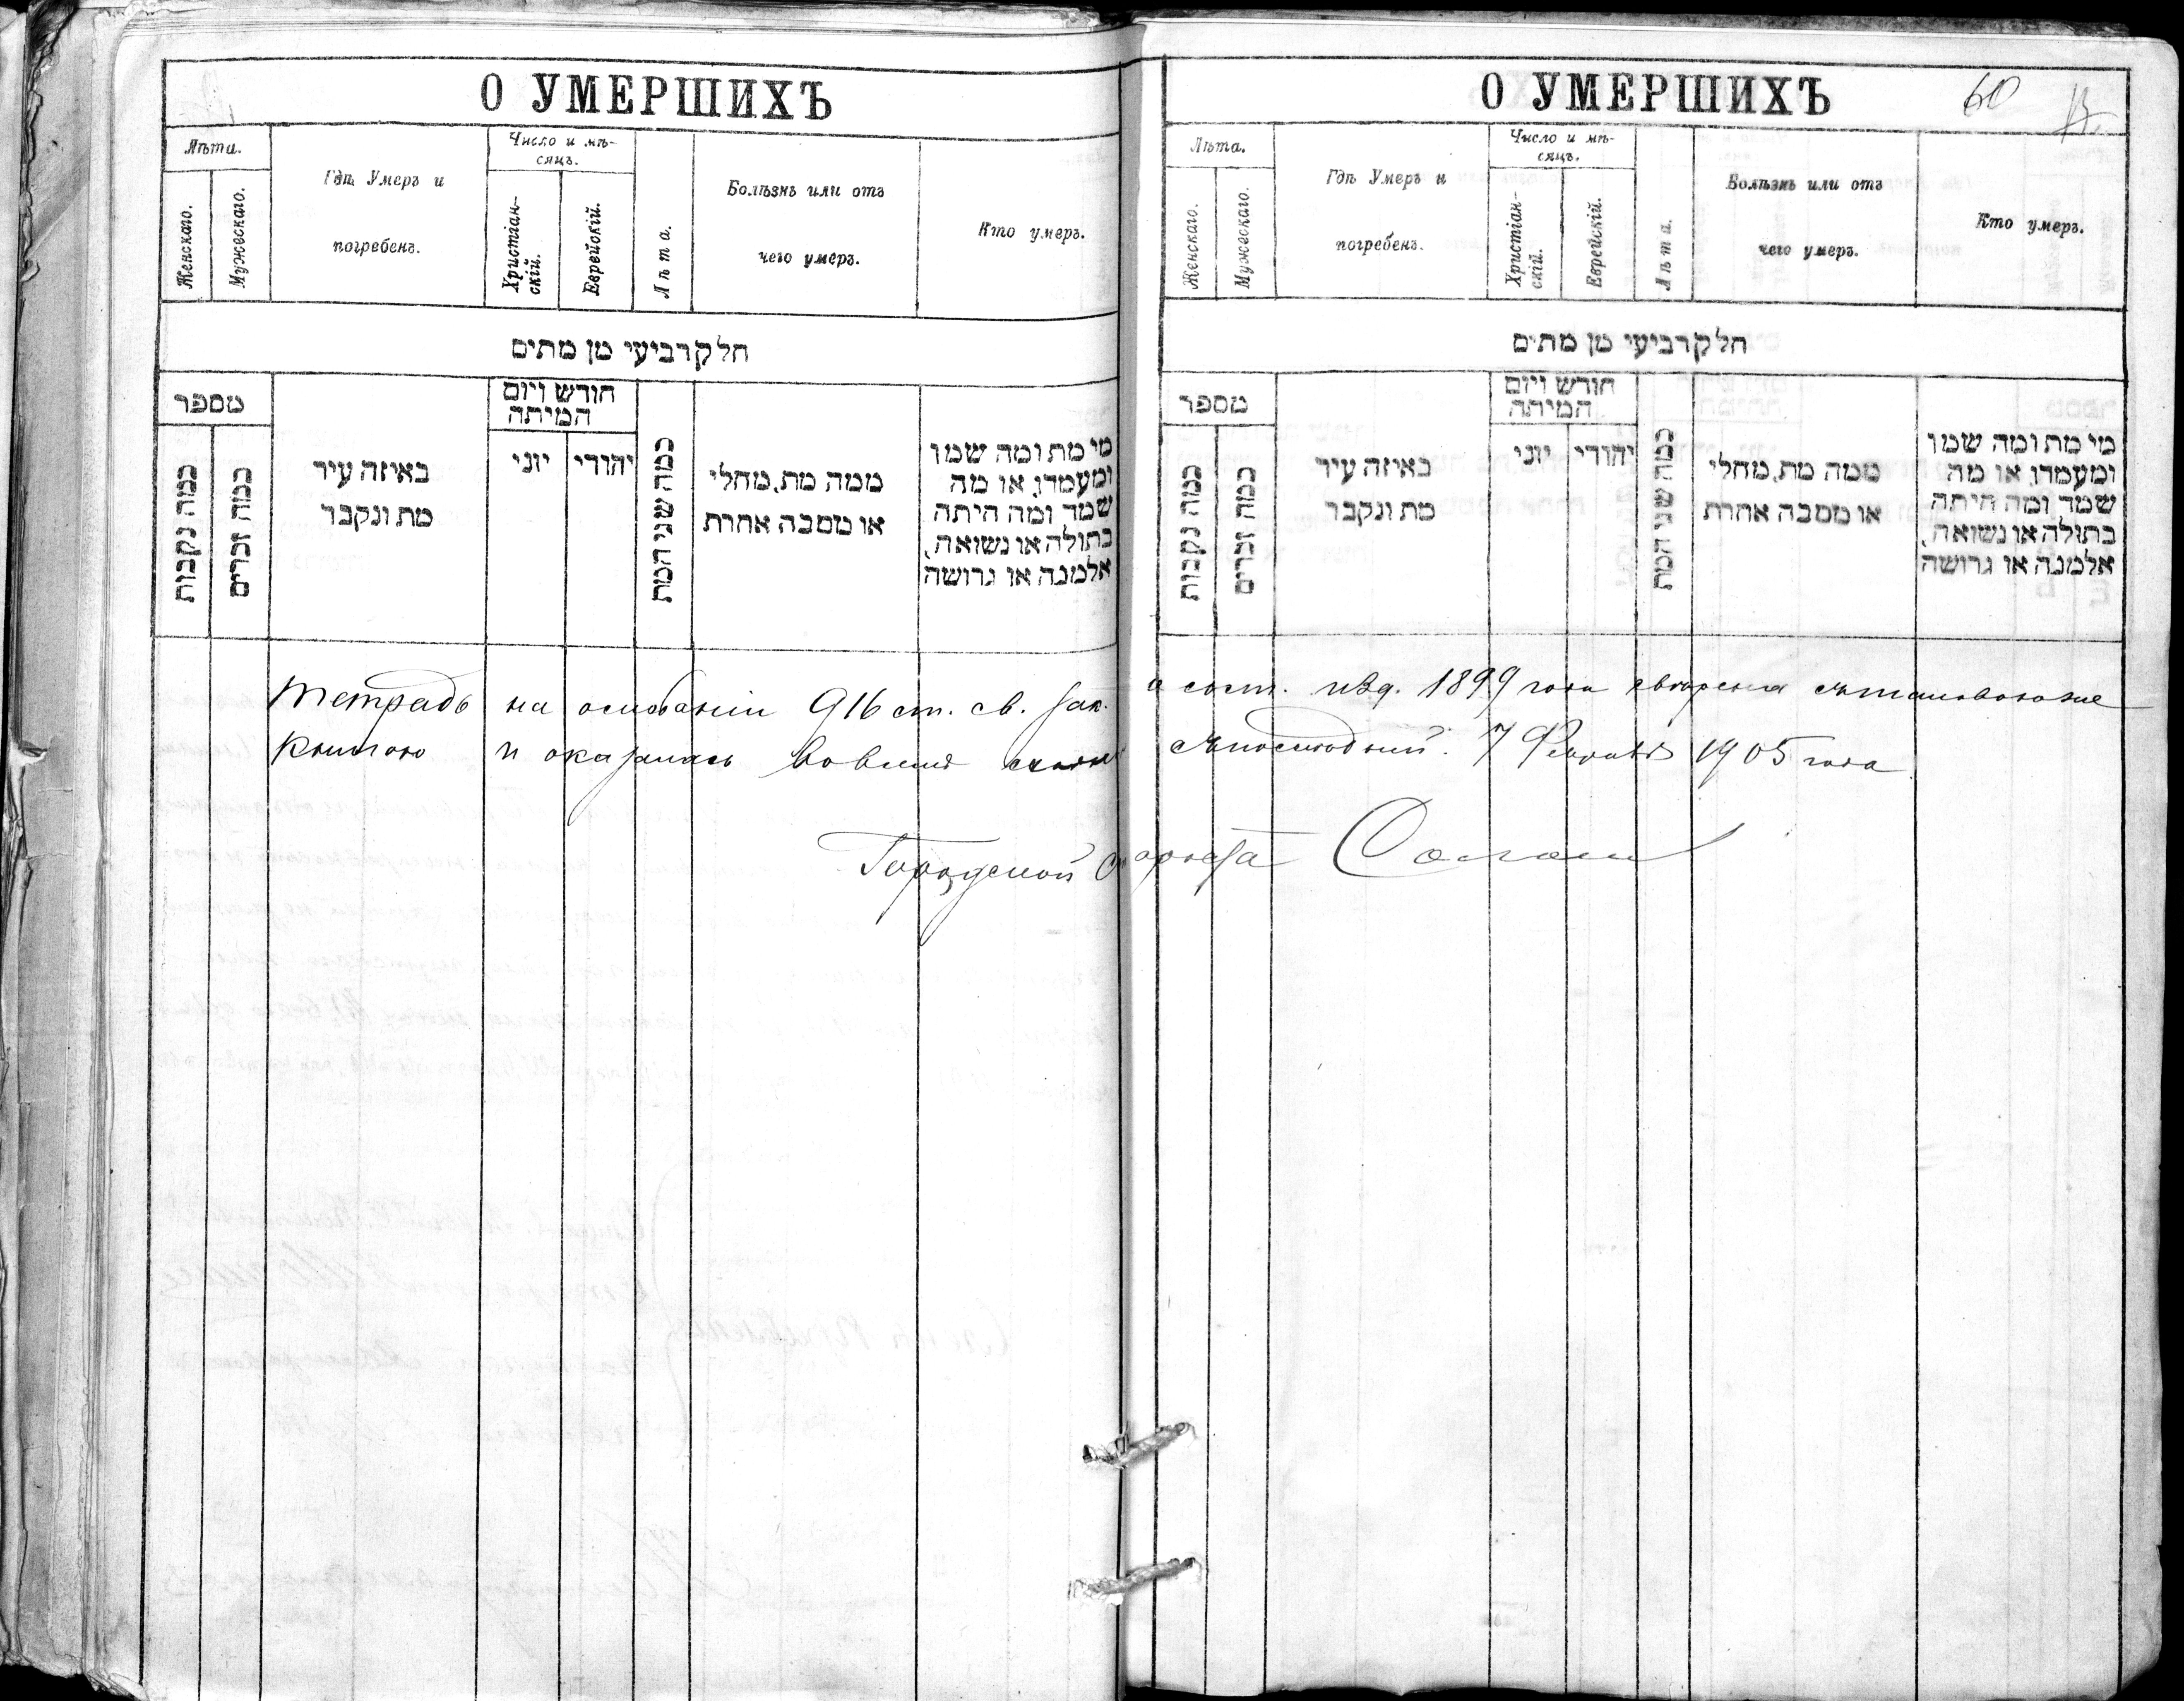 О УМЕРШИХЪ
Лѣта.
Женскаго.
Мужескаго.
Гдѣ Умеръ и
погребенъ.
Число и мѣ-
сяцъ.
Христіан-
скій.
Еврейскій.
Лѣта.
Болѣзнь или отъ
чего умеръ.
Кто умеръ.
חלק רביעי מן מתים
מספר
כמה נקבות
כמה זכרים
באיזה עיר
מת ונקבר
חודש ויום
המיתה
יוני
יהודי
כמה שני המת
ממה מת, מחלי
או מסבה אחרת
מי מת ומה שמו
ומעמדו, או מה
שמד ומה היתה
בתולה או נשואה,
אלמנה או גרושה
О УМЕРШИХЪ
60
Лѣта.
Женскаго.
Мужескаго.
Гдѣ Умеръ и
погребенъ.
Число и мѣ-
сяцъ.
Христіан-
скій.
Еврейскій.
Лѣта.
Болѣзнь или отъ
чего умеръ.
Кто умеръ.
חלק רביעי מן מתים
מספר
כמה נקבות
כמה זכרים
באיזה עיר
מת ונקבר
חודש ויום
המיתה
יוני
יהודי
כמה שני המת
ממה מת, מחלי
או מסבה אחרת
מי מת ומה שמו
ומעמדו, או מה
שמד ומה היתה
בתולה או נשואה,
אלמנה או גרושה
Тетрадь на основаніи 916 ст. св. зак. о сост. изд. 1899 года свѣрена съ таковою же
книгою и оказалась во всемъ съ 7 Февраля 1905 года
Городской Староста